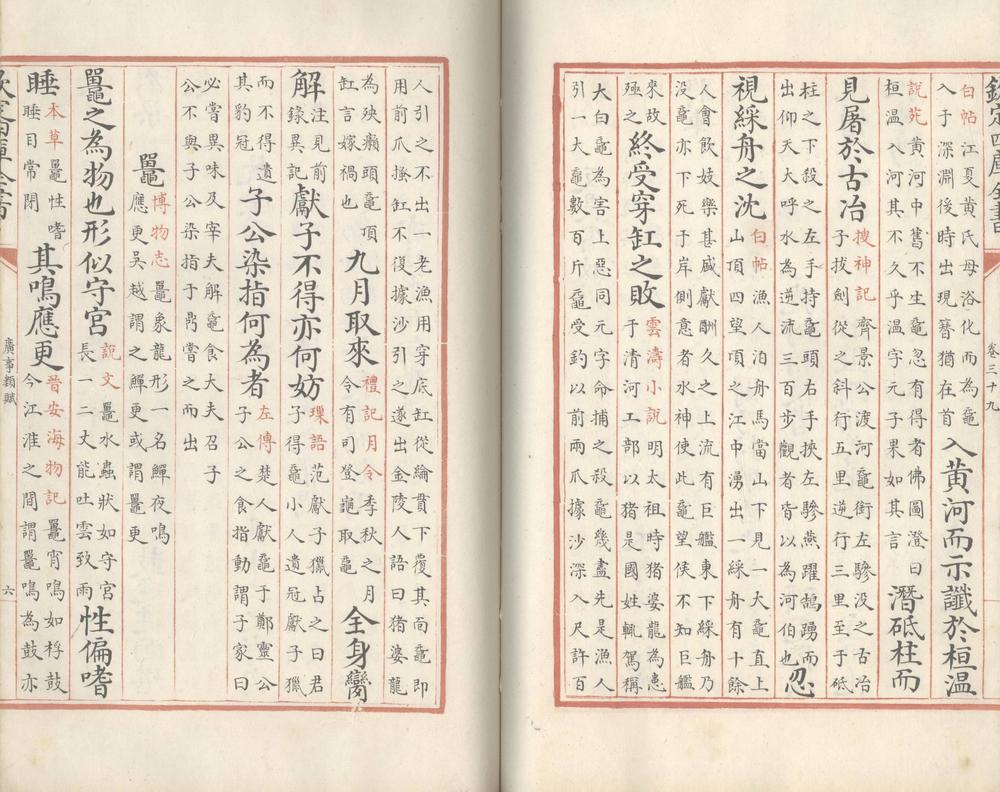 欽定四庫全書
卷三十九
白帖江夏黃氏母浴化而為黿
入于深淵後時出現簪猶在首
入黃河而示讖於桓溫
說苑黃河中舊不生黿忽有得者佛圖澄曰
桓温入河其不久乎温字元子果如其言
潛砥柱而
見屠於古冶
搜神記齊景公渡河黿銜左驂沒之古冶
子拔劍從之斜行五里逆行三里至于砥
柱之下殺之左手持黿頭右手挾左驂燕躍鵠踴而
出仰天大呼水為逆流三百步觀者皆以為河伯也
忍
視綵舟之沈
白帖漁人泊舟馬當山下見一大黿直上
山頂四望頃之江中湧出一綵舟有十餘
人會飲妓樂甚盛獻酬久之上流有巨艦東下綵舟乃
没黿亦下死于岸側意者水神使此黿望侯不知巨艦
來故
殛之
終受穿缸之敗
雲濤小說明太祖時猪婆龍為患
于清河工部以猪是國姓輒駕稱
大白黿為害上惡同元字命捕之殺黿幾盡先是漁人
引一大黿數百斤受釣以前兩爪據沙深入尺許百
人引之不出一老漁用穿底缸從綸貫下覆其而黿即
用前爪搔缸不復據沙引之遂出金陵人語曰猪婆龍
為殃癩頭黿頂
缸言嫁禍也
九月取來
禮記月令季秋之月
令有司登龜取黿
全身臠
解
注見前
錄異記
獻子不得亦何妨
璅語范獻子獵占之曰君
子得黿小人遺冠獻子獵
而不得遺
其豹冠
子公染指何為者
左傳楚人獻黿于鄭靈公
子公之食指動謂子家曰
必嘗異味及宰夫解黿食大夫召子
公不與子公染指于鼎嘗之而出
鼉
博物志鼉象龍形一名鱓夜鳴
應更吳越謂之鱓更或謂鼉更
鼉之為物也形似守宮
說文鼉水蟲狀如守宮
長一二丈能吐雲致雨
性偏嗜
睡
本草鼉性嗜
睡目常閉
其鳴應更
晉安海物記鼉宵鳴如桴鼓
今江淮之間謂鼉鳴為鼓亦
欽定四庫全書
廣事類賦
六